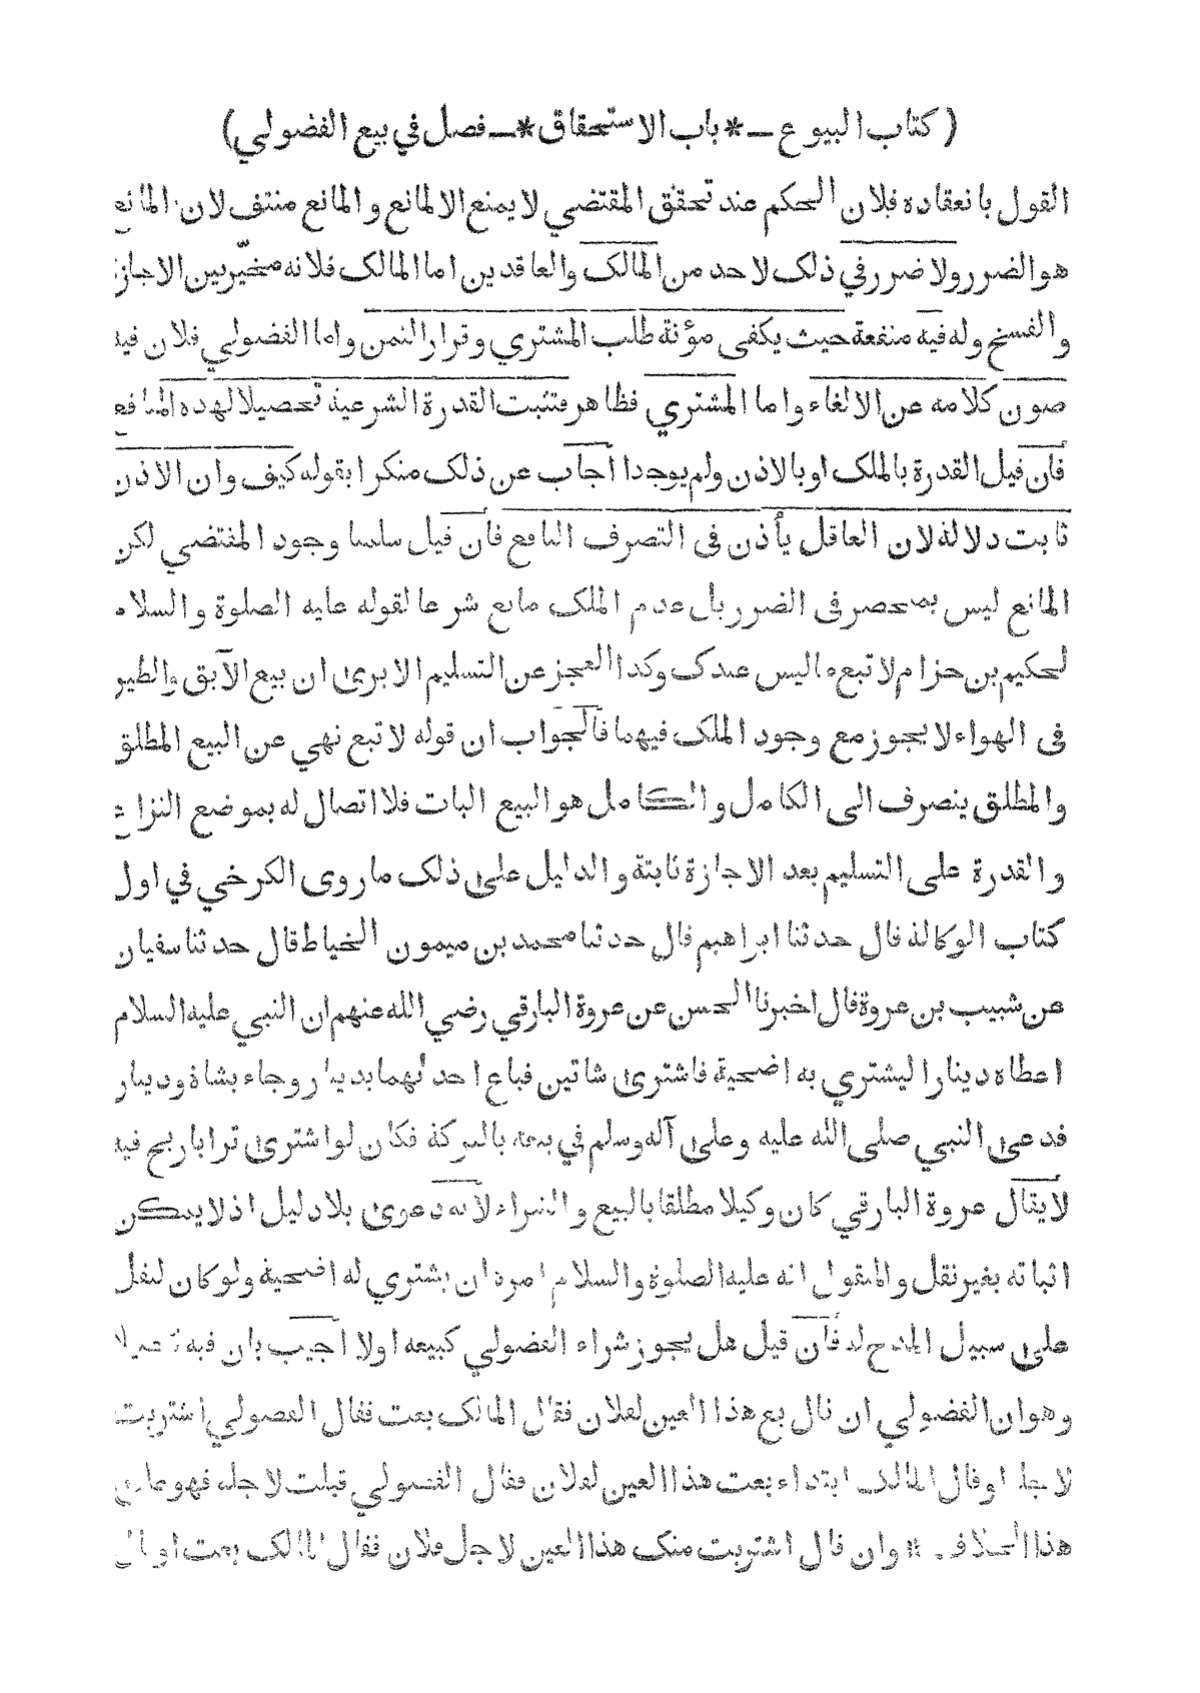 ( كتاب البيوع ـ * باب الاستحقاق * ـ فصل في بيع الفضولي )
القول بانعقاده فلان الحكم عند تحقق المقتضي لا يمنع الا لمانع والمانع منتف لان المانع
هو الضرر ولا ضرر في ذلك لاحد من المالك والعاقدين اما المالك فلانه مخيّر بين الاجازة
والفسخ وله فيه منفعة حيث يكفى مؤنة طلب المشتري وقرار الثمن واما الفضولي فلان فيه
صون كلامه عن الالغاء واما المشتري فظاهر فتثبت القدرة الشرعية تحصيلا لهذه المنافع
فان قيل القدرة بالملك او بالاذن ولم يوجدا اجاب عن ذلك منكرا بقوله كيف وان الاذن
ثابت دلالة لان العاقل يأذن فى التصرف النافع فان قيل سلمنا وجود المقتضي لكن
المانع ليس بمنحصر فى الضرر بل عدم الملك مانع شرعا لقوله عليه الصلوة والسلام
لحكيم بن حزام لا تبع ما ليس عندك وكذا العجز عن التسليم الا يرى ان بيع الآبق والطير
فى الهواء لا يجوز مع وجود الملك فيهما فالجواب ان قوله لا تبع نهي عن البيع المطلق
والمطلق ينصرف الى الكامل والكامل هو البيع البات فلا اتصال له بموضع النزاع
والقدرة على التسليم بعد الاجازة ثابتة والدليل على ذلك ما روى الكرخي في اول
كتاب الوكالة قال حدثنا ابراهيم قال حدثنا محمد بن ميمون الخياط قال حدثنا سفيان
عن شبيب بن عروة قال اخبرنا الحسن عن عروة البارقي رضي الله عنهم ان النبي عليه السلام
اعطاه دينارا ليشتري به اضحية فاشترى شاتين فباع احدٮهما بدينار وجاء بشاة ودينار
فدعى النبي صلى الله عليه وعلى آله وسلم في بيعه بالبركة فكان لو اشترى ترابا ربح فيه
لا يقال عروة البارقي كان وكيلا مطلقا بالبيع والشراء لانه دعوى بلا دليل اذ لا يمكن
اثباته بغير نقل والمنقول انه عليه الصلوة والسلام امره ان يشتري له اضحية ولو كان لنقل
على سبيل المدح له فان قيل هل يجوز شراء الفضولي كبيعه اولا اجيب بان فيه تفصيلا
وهو ان الفضولي ان قال بع هذا العين لفلان فقال المالك بعت فقال الفضولي اشتريت
لاجله او قال المالك ابتداء بعت هذا العين لفلان فقال الفضولي قبلت لاجله فهو على
هذا الخلاف * وان قال اشتريت منك هذا العين لاجل فلان فقال المالك بعت او قال